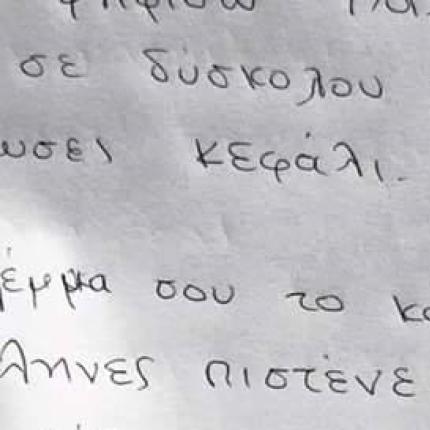 σε δύσκολου
υσει κεφάλι.
έμμα σου το κ
ληνες πιστένε